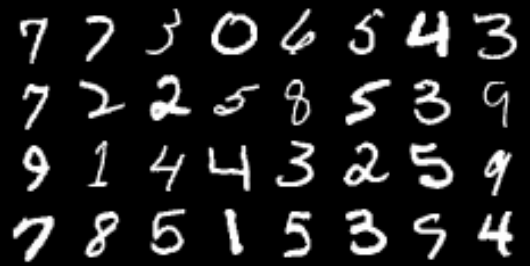 7 7 3 0 6 5 4 3
7 2 2 5 8 5 3 9
9 1 4 4 3 2 5 9
7 8 5 1 5 3 5 4